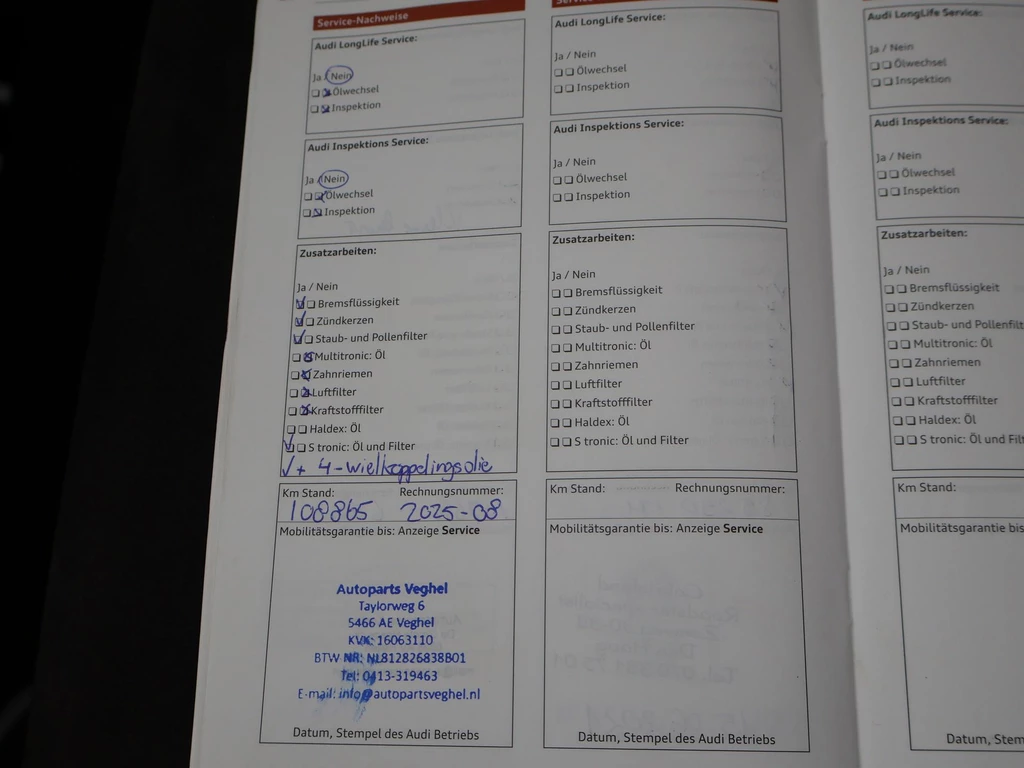 Service-Nachweise
Audi LongLife Service:
Ja / Nein
Ölwechsel
Inspektion
Audi Inspektions Service:
Ja / Nein
Ölwechsel
Inspektion
Zusatzarbeiten:
Ja / Nein
Bremsflüssigkeit
Zündkerzen
Staub- und Pollenfilter
Multitronic: Öl
Zahnriemen
Luftfilter
Kraftstofffilter
Haldex: Öl
S tronic: Öl und Filter
+ 4-wielkoppelingsolie
Km Stand: Rechnungsnummer:
108865 2025-08
Mobilitätsgarantie bis: Anzeige Service
Autoparts Veghel
Taylorweg 6
5466 AE Veghel
KVK: 16063110
BTW NR: NL812826838B01
Tel: 0413-319463
E-mail: info@autopartsveghel.nl
Datum, Stempel des Audi Betriebs
Audi LongLife Service:
Ja / Nein
Ölwechsel
Inspektion
Audi Inspektions Service:
Ja / Nein
Ölwechsel
Inspektion
Zusatzarbeiten:
Ja / Nein
Bremsflüssigkeit
Zündkerzen
Staub- und Pollenfilter
Multitronic: Öl
Zahnriemen
Luftfilter
Kraftstofffilter
Haldex: Öl
S tronic: Öl und Filter
Km Stand: Rechnungsnummer:
Mobilitätsgarantie bis: Anzeige Service
Datum, Stempel des Audi Betriebs
Audi LongLife Service:
Ja / Nein
Ölwechsel
Inspektion
Audi Inspektions Service:
Ja / Nein
Ölwechsel
Inspektion
Zusatzarbeiten:
Ja / Nein
Bremsflüssigkeit
Zündkerzen
Staub- und Pollenfilt
Multitronic: Öl
Zahnriemen
Luftfilter
Kraftstofffilter
Haldex: Öl
S tronic: Öl und Filt
Km Stand:
Mobilitätsgarantie bis
Datum, Stem